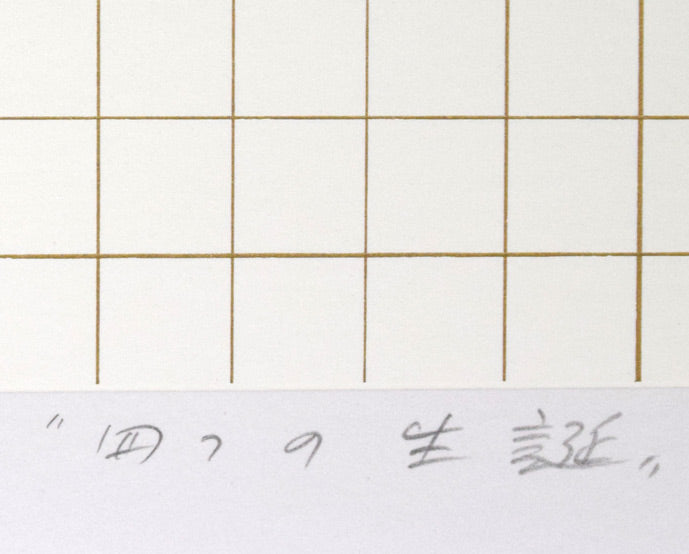 "四つの生誕"